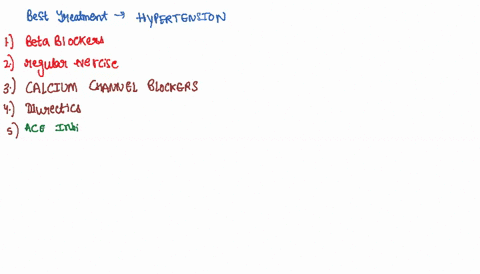 Best Treatment → HYPERTENSION
1.) Beta Blockers
2.) regular exercise
3.) CALCIUM CHANNEL BLOCKERS
4.) Diurectics
5) ACE INHI